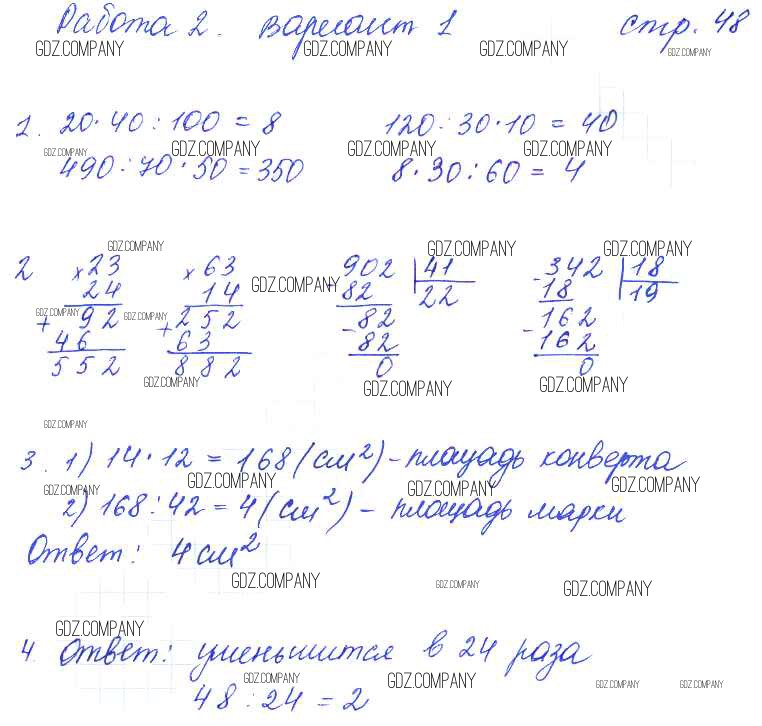 Работа 2. Вариант 1 стр. 48
GDZ.COMPANY GDZ.COMPANY GDZ.COMPANY GDZ.COMPANY
1. 20 · 40 : 100 = 8 120 : 30 · 10 = 40
GDZ.COMPANY GDZ.COMPANY GDZ.COMPANY GDZ.COMPANY
490 : 70 · 50 = 350 8 · 30 : 60 = 4
GDZ.COMPANY GDZ.COMPANY GDZ.COMPANY
2 × 23 × 63 - 902 41 - 342 18
24 14 82 22 18 19
GDZ.COMPANY
GDZ.COMPANY GDZ.COMPANY
+ 92 + 252 - 82 - 162
46 63 82 162
552 882 0 0
GDZ.COMPANY GDZ.COMPANY GDZ.COMPANY
GDZ.COMPANY
3. 1) 14 · 12 = 168 (см²) - площадь конверта
GDZ.COMPANY GDZ.COMPANY GDZ.COMPANY GDZ.COMPANY
2) 168 : 42 = 4 (см²) - площадь марки
Ответ: 4 см²
GDZ.COMPANY GDZ.COMPANY GDZ.COMPANY
GDZ.COMPANY
4. Ответ: уменьшится в 24 раза
GDZ.COMPANY GDZ.COMPANY GDZ.COMPANY GDZ.COMPANY
48 : 24 = 2